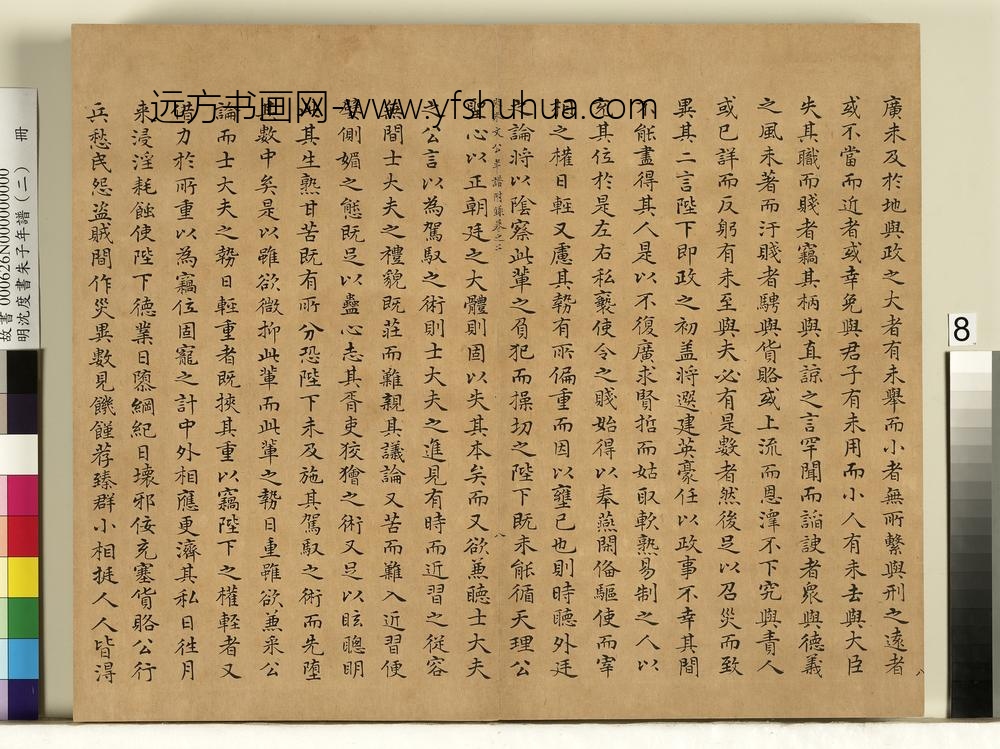 廣未及於地與政之大者有未舉而小者無所繫與刑之遠者
或不當而近者或幸免與君子有未用而小人有未去與大臣
失其職而賤者竊其柄與直諒之言罕聞而諂諛者衆與德義
之風未著而汙賤者騁與貨賂或上流而恩澤不下究與責人
或已詳而反躬有未至與夫必有是數者然後足以召災而致
異其二言陛下即政之初盖將遴建英豪任以政事不幸其間
不能盡得其人是以不復廣求賢哲而姑取軟熟易制之人以
充其位於是左右私褻使令之賤始得以奉燕閑俻驅使而宰
相之權日輕又慮其勢有所偏重而因以壅已也則時聽外廷
文公年譜附録卷之二
八
之論將以陰察此輩之負犯而操切之陛下既未能循天理公
聖心以正朝廷之大體則固以失其本矣而又欲兼聽士大夫
之公言以為駕馭之術則士大夫之進見有時而近習之從容
無間士大夫之禮貌既莊而難親其議論又苦而難入近習便
嬖側媚之態既足以蠱心志其胥吏狡獪之術又足以眩聰明
此其生熟甘苦既有所分恐陛下未及施其駕馭之術而先墮
其數中矣是以雖欲微抑此輩而此輩之勢日重雖欲兼采公
論而士大夫之勢日輕重者既挾其重以竊陛下之權輕者又
借力於所重以為竊位固寵之計中外相應更濟其私日徃月
来浸淫耗蝕使陛下德業日隳綱紀日壞邪佞充塞貨賂公行
兵愁民怨盗賊間作災異數見饑饉荐臻群小相挻人人皆得
八
远方书画网-www.yfshuhua.com
故書 000626N000000000
明沈度書朱子年譜(二) 冊
8